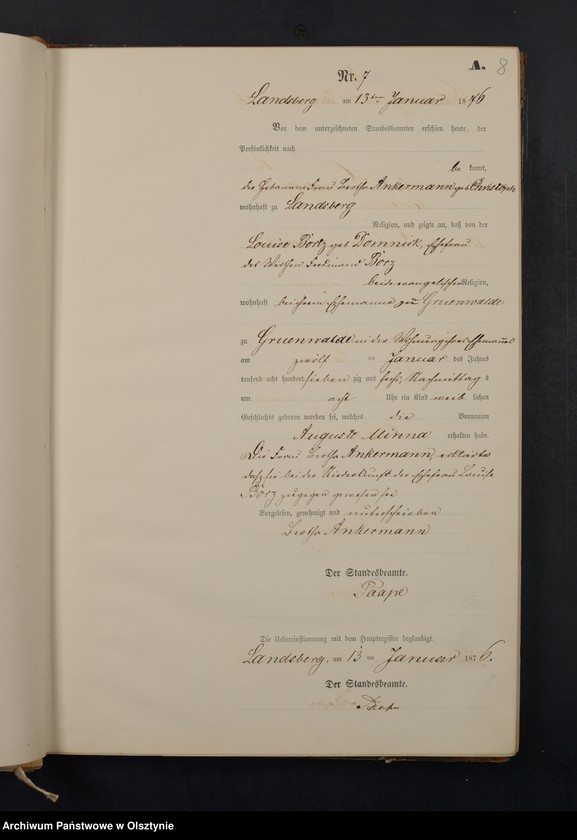 A.
8
Nr. 7
Landsberg am 13ten Januar 1876
Vor dem unterzeichneten Standesbeamten erschien heute, der
Persönlichkeit nach
be kannt,
die Hebamme Frau Bertha Ankermann geb
wohnhaft zu Landsberg
Religion, und zeigte an, daß von der
Louise Borz geb Domnick, Ehefrau
des Ferdinand Borz
beide evangelischer Religion,
wohnhaft bei ihrem Ehemanne zu Gruenwalde
zu Gruenwalde in der Wohnung ihres Ehemannes
am zwölf ten Januar des Jahres
tausend acht hundert sieben zig und sechs Nachmittag s
um acht Uhr ein Kind weib lichen
Geschlechts geboren worden sei, welches die Vornamen
Auguste Minna erhalten habe.
Die Frau Bertha Ankermann erklärte
daß sie bei der Niederkunft der Ehefrau Louise
Borz zugegen gewesen sei
Vorgelesen, genehmigt und unterschrieben
Bertha Ankermann
Der Standesbeamte.
Paape
Die Uebereinstimmung mit dem Hauptregister beglaubigt.
Landsberg, am 13 ten Januar 1876.
Der Standesbeamte.
Paape
Archiwum Państwowe w Olsztynie